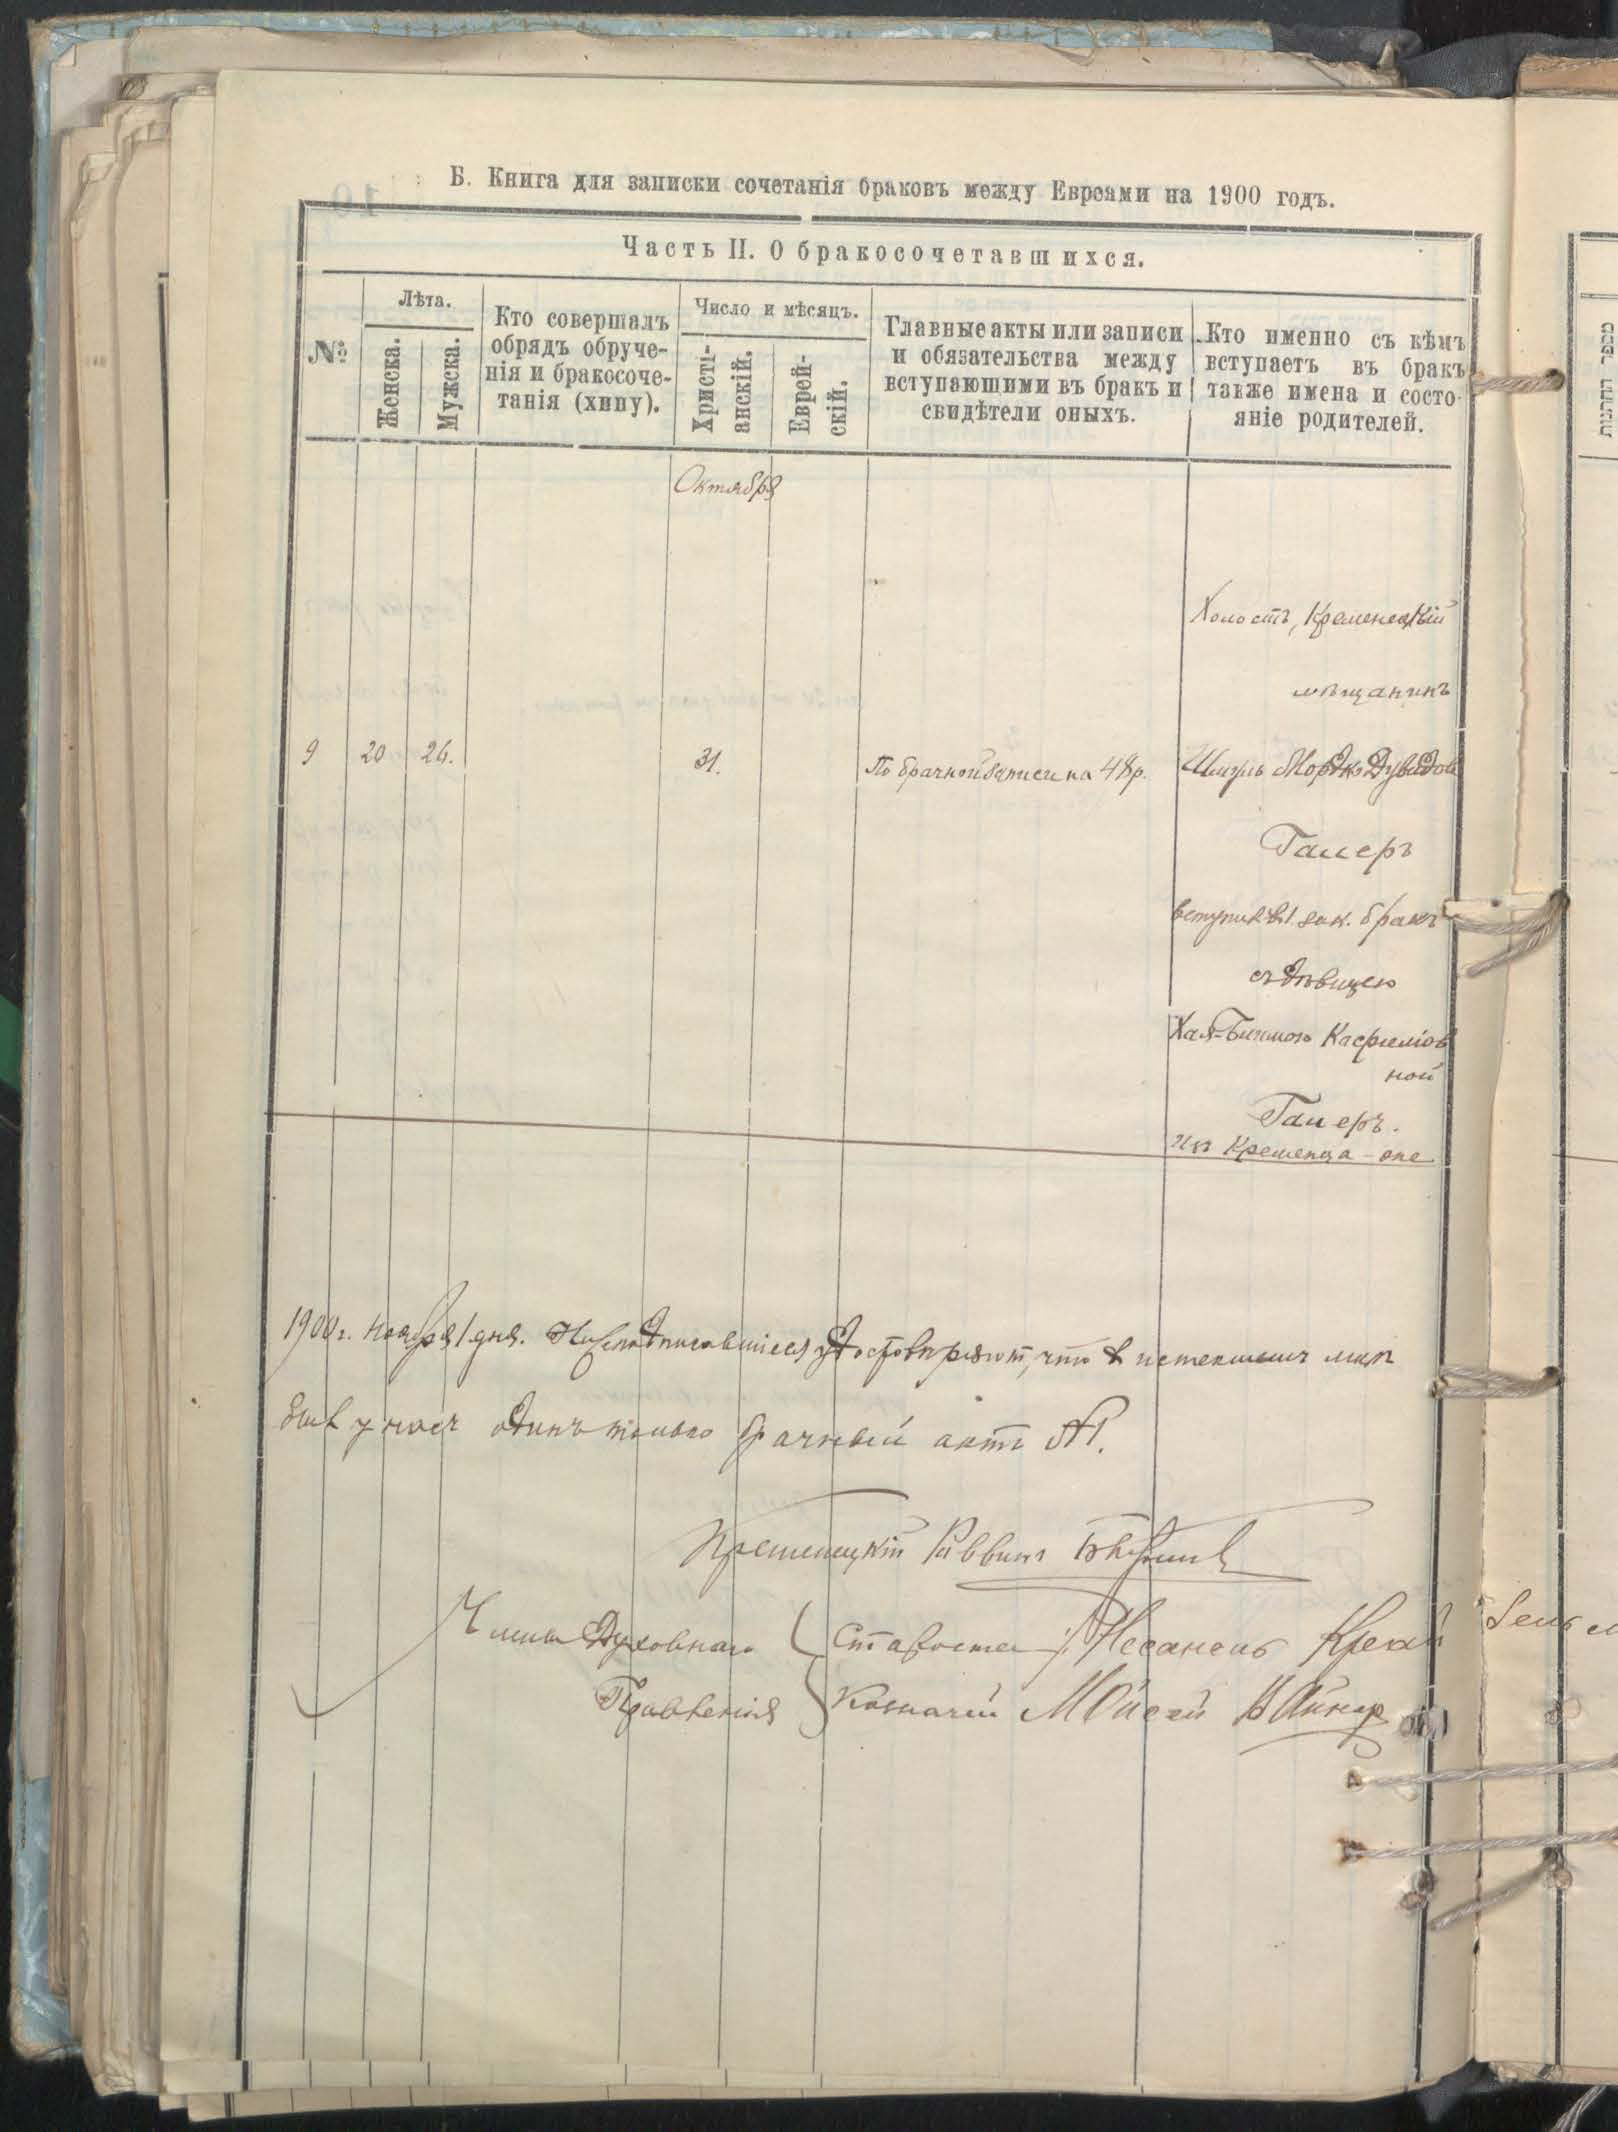 Б. Книга для записки сочетанія браковъ между Евреями на 1900 годъ.
Часть II. О бракосочетавшихся.
№
Лѣта.
Женска.
Мужска.
Кто совершалъ
обрядъ обруче-
нія и бракосоче-
танія (хипу).
Число и мѣсяцъ.
Христі-
анскій.
Еврей-
скій.
Главные акты или записи
и обязательства между
вступающими въ бракъ и
свидѣтели оныхъ.
Кто именно съ кѣмъ
вступаетъ въ бракъ
также имена и состо-
яніе родителей.
Октября
Холостъ, Кременецкій
мѣщанинъ
9 20 26. 31. По брачной записи на 48 р. Шмуль Мордко Дувидов
Галеръ
вступил в 1 зак. бракъ
съ дѣвицею
Хая-
ной
Галеръ.
из Кременца
1900 г. Ноября 1 дня. Нижеподписавшіеся удостовѣряют, что в истекшемъ мѣс
был у насъ одинъ только брачный актъ №1.
Кременецкій Раввинъ
Члены Духовнаго Староста
Правленія Казначей Мойсей Вайнер